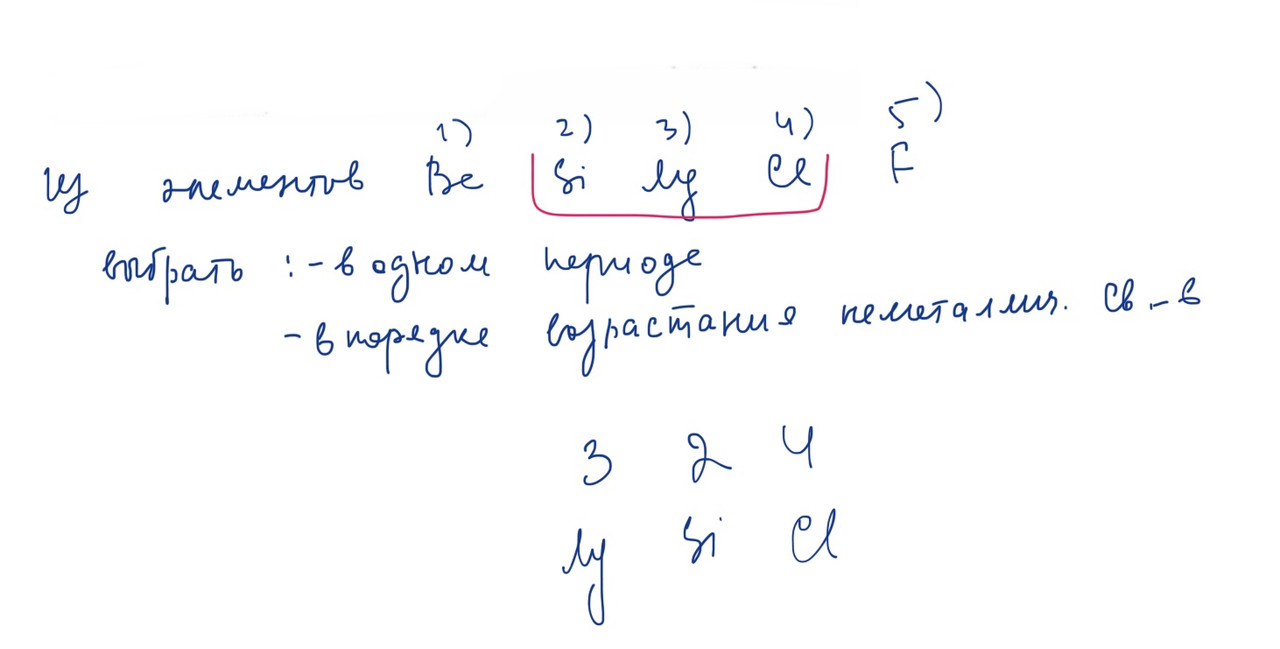 1) 2) 3) 4) 5)
Из элементов Be Si Mg Cl F
выбрать : - в одном периоде
- в порядке возрастания неметаллич. св-в
3 2 4
Mg Si Cl